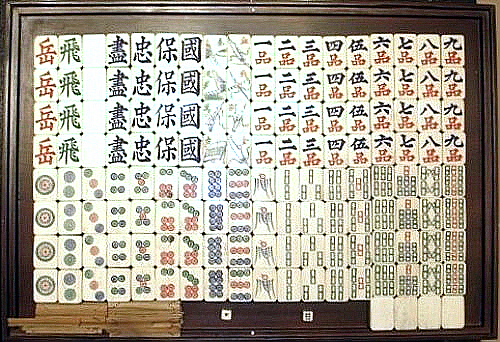 岳飛 盡忠保國 一品 二品 三品 四品 伍品 六品 七品 八品 九品
岳飛 盡忠保國 一品 二品 三品 四品 伍品 六品 七品 八品 九品
岳飛 盡忠保國 一品 二品 三品 四品 伍品 六品 七品 八品 九品
岳飛 盡忠保國 一品 二品 三品 四品 伍品 六品 七品 八品 九品